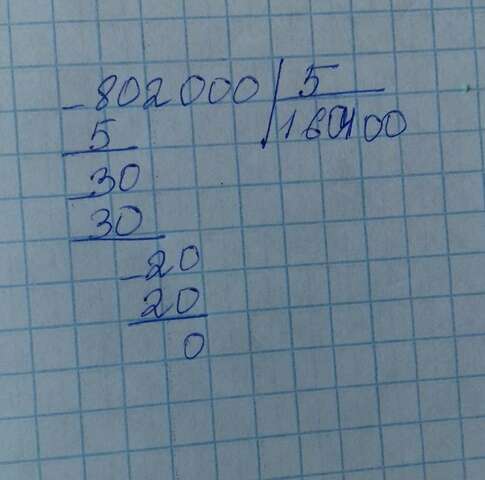 -802000 5
5 160400
-30
30
-20
20
0